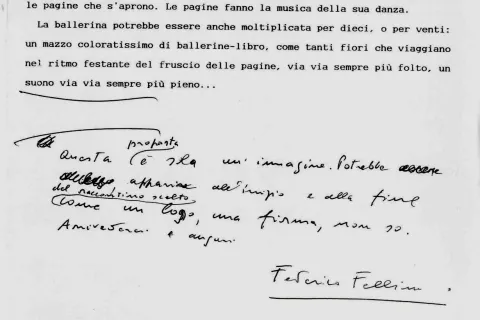 le pagine che s'aprono. Le pagine fanno la musica della sua danza.
La ballerina potrebbe essere anche moltiplicata per dieci, o per venti:
un mazzo coloratissimo di ballerine-libro, come tanti fiori che viaggiano
nel ritmo festante del fruscio delle pagine, via via sempre più folto, un
suono via via sempre più pieno...
proposta
Questa è solo un'immagine. Potrebbe
apparire all'inizio e alla fine
del raccontino scelto
come un logo, una firma, non so.
Arrivederci e auguri
Federico Fellini.